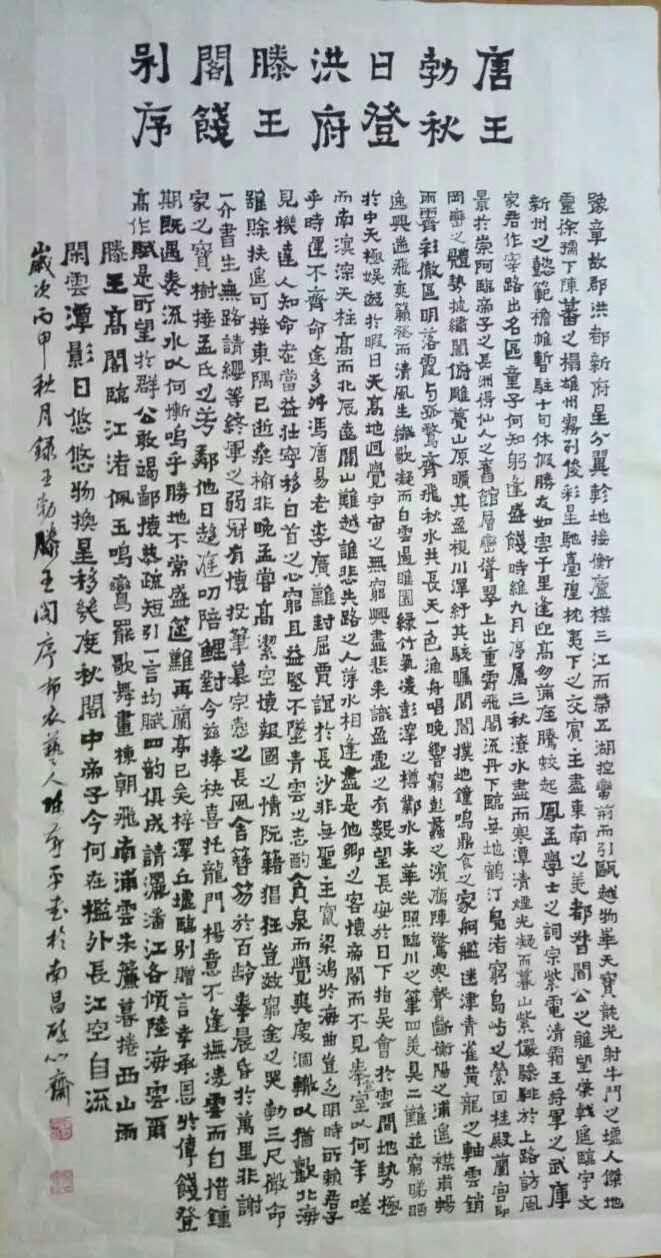 唐王
勃秋
日登
洪府
滕王
閣餞
别序
豫章故郡洪都新府星分翼軫地接衡廬襟三江而帶五湖控蠻荊而引甌越物華天寶龍光射牛鬥之墟人傑地
靈徐孺下陳蕃之榻雄州霧列俊彩星馳臺隍枕夷下之交賓主盡東南之美都督閻公之雅望棨戟遙臨宇文
新州之懿範襜帷暫駐十旬休假勝友如雲千里逢迎高朋滿座騰蛟起鳳孟學士之詞宗紫電清霜王將軍之武庫
家君作宰路出名區童子何知躬逢盛餞時維九月序屬三秋潦水盡而寒潭清煙光凝而暮山紫儼驂騑於上路訪風
景於崇阿臨帝子之長洲得仙人之舊館層巒聳翠上出重霄飛閣流丹下臨無地鶴汀鳧渚窮島嶼之縈回桂殿蘭宮即
岡巒之體勢披繡闥俯雕甍山原曠其盈視川澤紆其駭矚閭閻撲地鐘鳴鼎食之家舸艦迷津青雀黃龍之軸雲銷
雨霽彩徹區明落霞与孤鶩齊飛秋水共長天一色漁舟唱晚響窮彭蠡之濱雁陣驚寒聲斷衡陽之浦遙襟甫暢
逸興遄飛爽籟發而清風生纖歌凝而白雲遏睢園綠竹氣凌彭澤之樽鄴水朱華光照臨川之筆四美具二難並窮睇眄
於中天極娛遊於暇日天高地迥覺宇宙之無窮興盡悲來識盈虛之有數望長安於日下指吳會於雲間地勢極
而南溟深天柱高而北辰遠關山難越誰悲失路之人萍水相逢盡是他鄉之客懷帝閽而不見奉宣室以何年嗟
乎時運不齊命途多舛馮唐易老李廣難封屈賈誼於長沙非無聖主竄梁鴻於海曲豈乏明時所賴君子
見機達人知命老當益壯寧移白首之心窮且益堅不墜青雲之志酌貪泉而覺爽處涸轍以猶歡北海
雖賒扶搖可接東隅已逝桑榆非晚孟嘗高潔空懷報國之情阮籍猖狂豈效窮途之哭勃三尺微命
一介書生無路請纓等終軍之弱冠有懷投筆慕宗愨之長風舍簪笏於百齡奉晨昏於萬里非謝
家之寶樹接孟氏之芳鄰他日趨庭叨陪鯉對今兹捧袂喜托龍門楊意不逢撫凌雲而自惜鍾
期既遇奏流水以何慚嗚乎勝地不常盛筵難再蘭亭已矣梓澤丘墟臨别贈言幸承恩於偉餞登
高作賦是所望於群公敢竭鄙懷恭疏短引一言均賦四韻俱成請灑潘江各傾陸海雲爾
滕王高閣臨江渚佩玉鳴鸞罷歌舞畫棟朝飛南浦雲朱簾暮捲西山雨
閑雲潭影日悠悠物換星移幾度秋閣中帝子今何在檻外長江空自流
歲次丙申秋月録王勃滕王阁序布衣藝人平書於南昌心齋